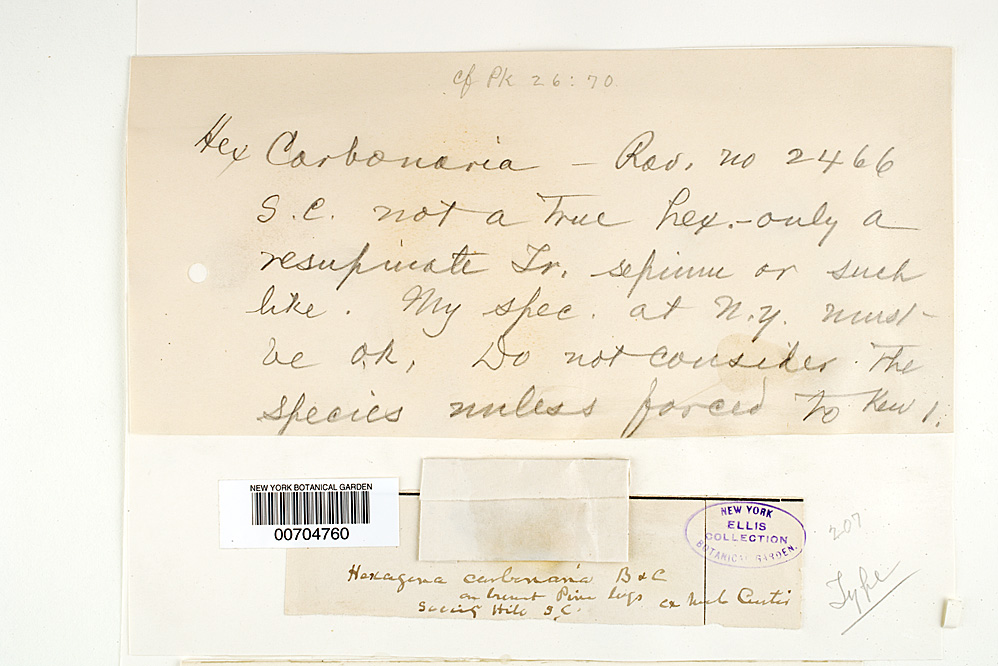 cf Pk 26:70
Hex Carbonaria - Rav. no 2466
S.C. not a True hex. - only a
resupinate Tr. sepium or such
like. My spec. at N.Y. must
be ok, Do not consider The
species unless forced To Kew 1.
NEW YORK BOTANICAL GARDEN
00704760
NEW YORK
ELLIS
COLLECTION
BOTANICAL GARDEN.
207
Type
Hexagona carbonaria B & C
on burnt Pine logs ex Herb Curtis
Society Hill S.C.